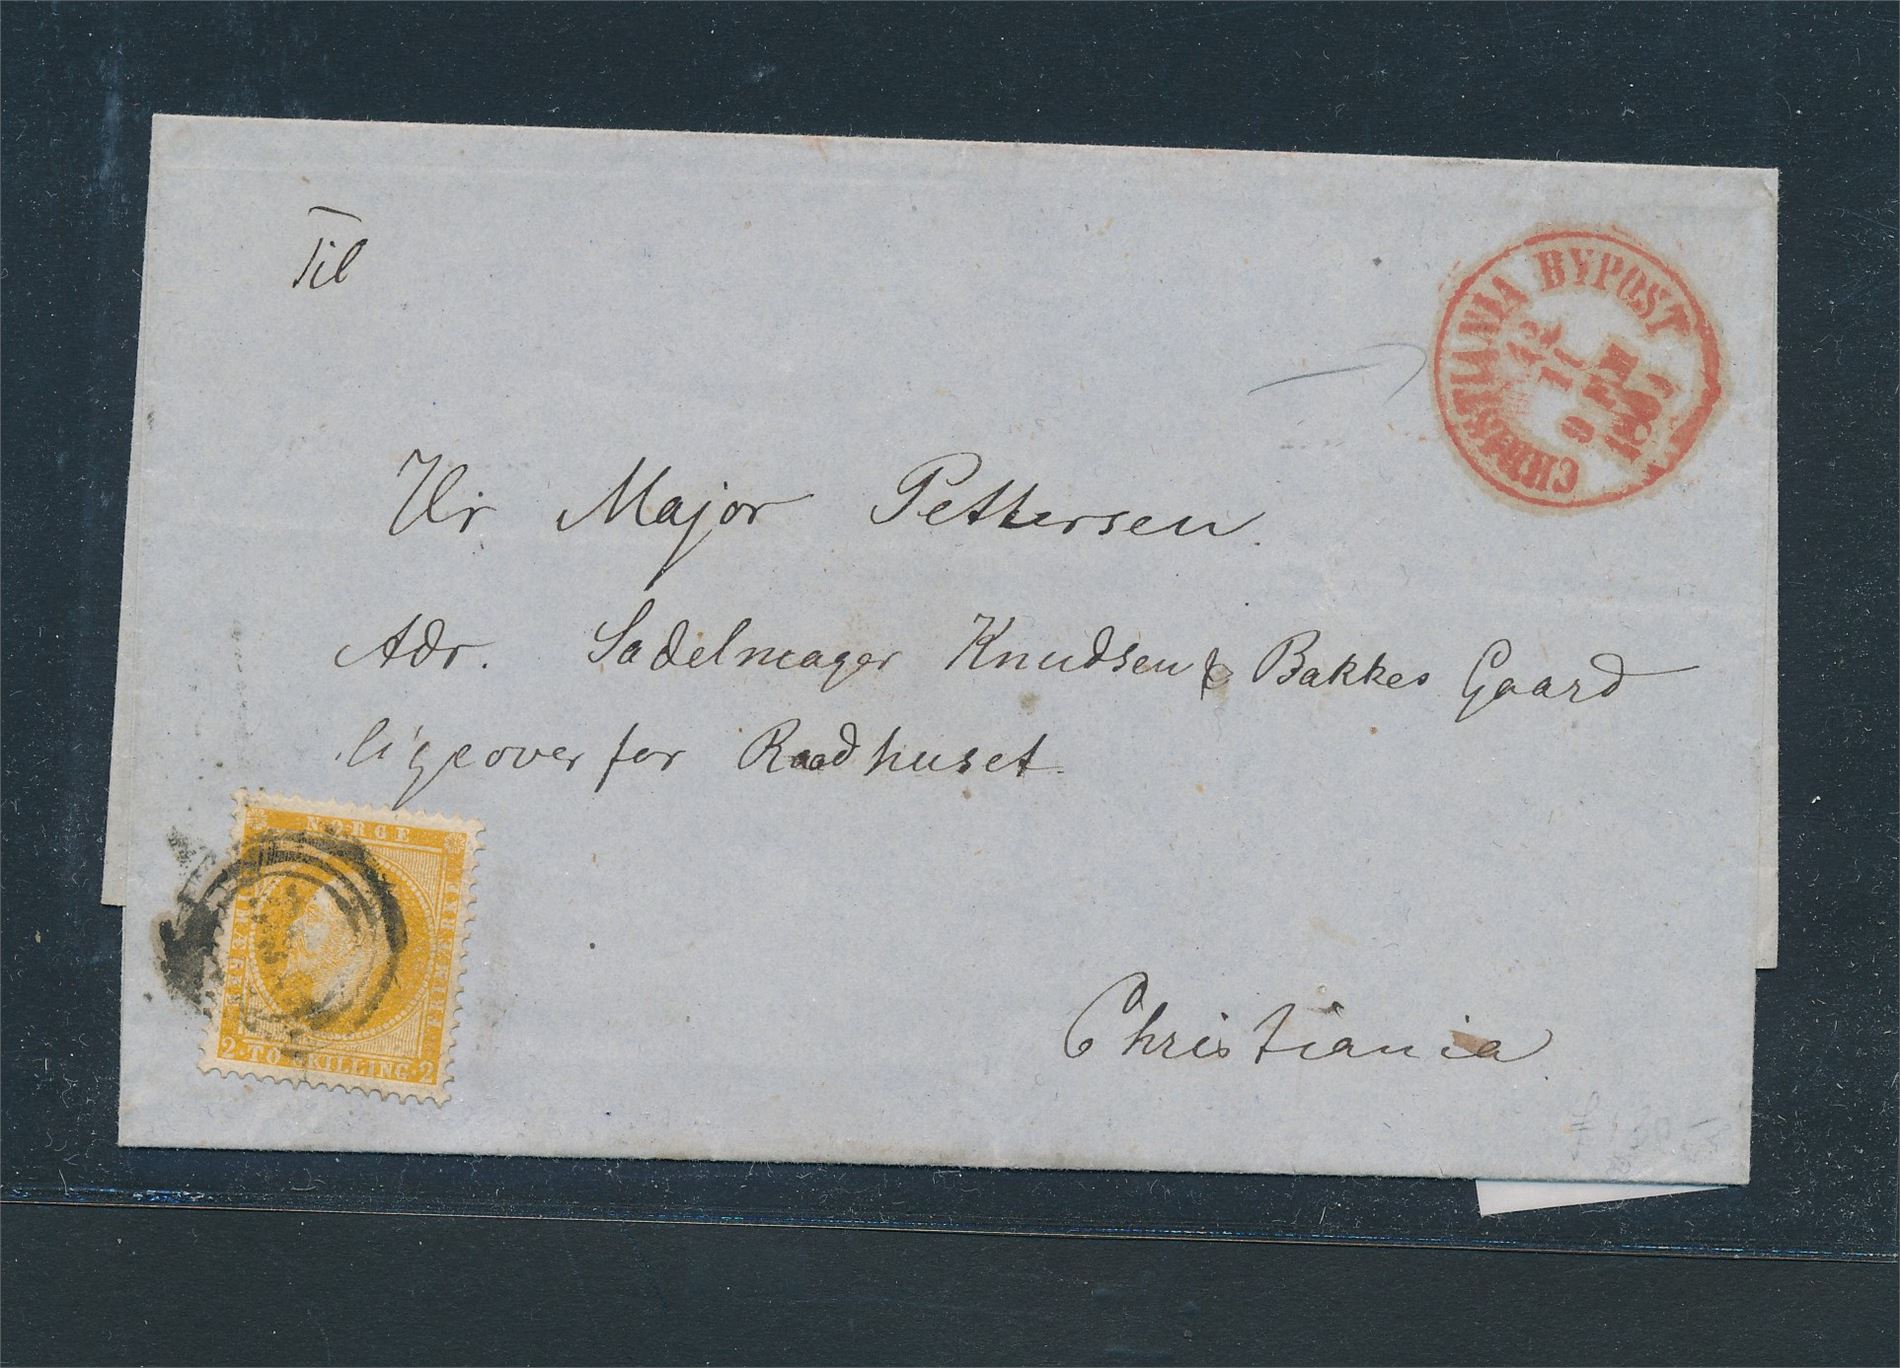 Til
CHRISTIANIA BYPOST
Hr Major Pettersen.
Adr. Sadelmager Knudsen Bakkes Gaard
ligeover for Raadhuset
NORGE
FRIMÆRKE
FRIMÆRKE
2·TO SKILLING·2
Christiania.